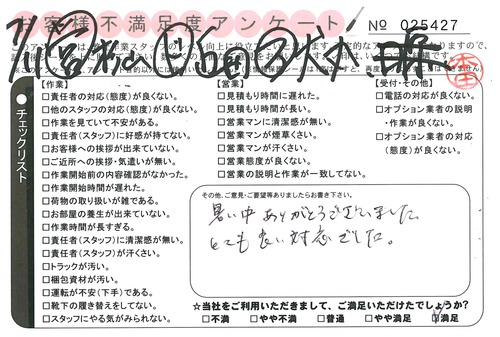 お客様不満足度アンケート
No 025427
チェックリスト
【作業】
□責任者の対応(態度)が良くない。
□他のスタッフの対応(態度)が良くない。
□作業を見ていて不安がある。
□責任者(スタッフ)に好感が持てない。
□お客様への挨拶が出来ていない。
□ご近所への挨拶・気遣いが無い。
□作業開始前の内容確認がなかった。
□作業開始時間が遅れた。
□荷物の取り扱いが雑である。
□お部屋の養生が出来ていない。
□作業時間が長すぎる。
□責任者(スタッフ)に清潔感が無い。
□責任者(スタッフ)が汗くさい。
□トラックが汚い。
□梱包資材が汚い。
□運転が不安(下手)である。
□靴下の履き替えをしてない。
□スタッフにやる気がみられない。
【営業】
□見積もり時間に遅れた。
□見積もり時間が長い。
□営業マンに清潔感が無い。
□営業マンが煙草くさい。
□営業マンが汗くさい。
□営業態度が良くない。
□営業の説明と作業が一致してない。
【受付・その他】
□電話の対応が良くない。
□オプション業者の説明
・作業が良くない。
□オプション業者の対応
(態度)が良くない。
その他、ご意見・ご要望等ありましたらお書き下さい。
暑い中ありがとうございました。
とても良い対応でした。
☆当社をご利用いただきまして、ご満足いただけたでしょうか?
□不満 □やや不満 □普通 □やや満足 □満足